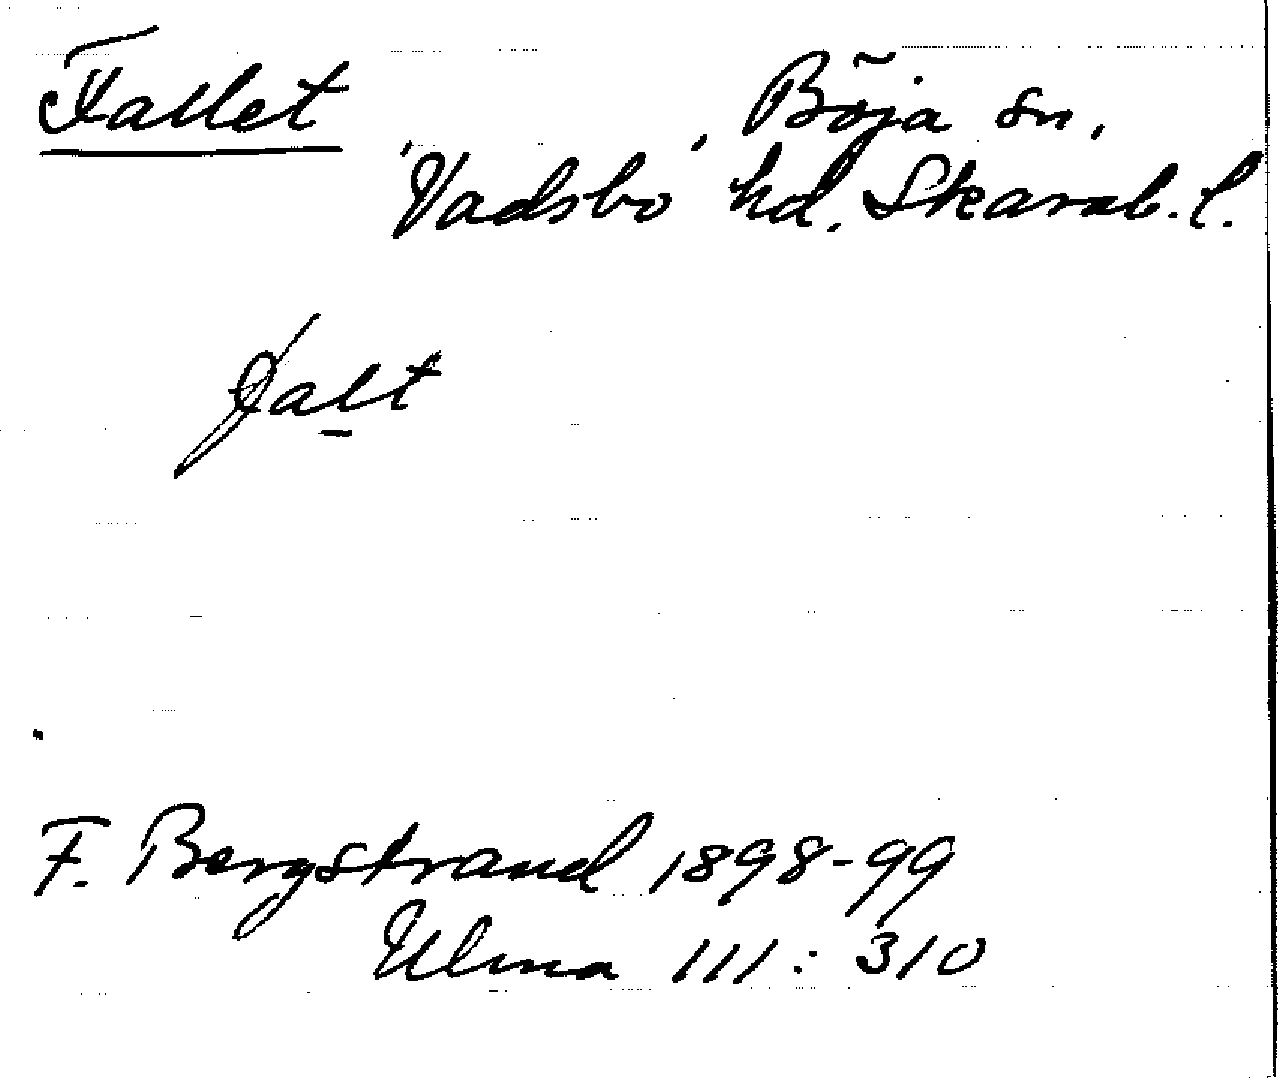 Fallet , Böja sn,
Vadsbo hd. Skarab. l.
falt
F. Bergstrand 1898-99
Ulma 111: 310